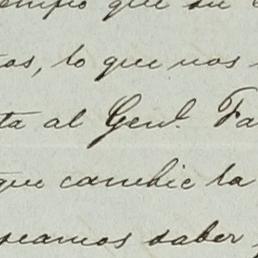 tiempo que su
tos, lo que nos
ta al Genl. Fa
que cambie la
seamos saber